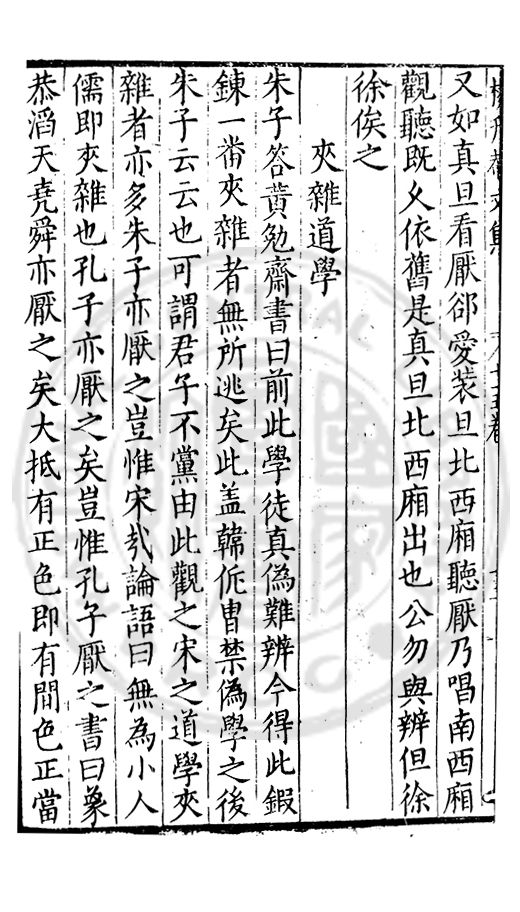 又如真旦看厭郤愛裝旦北西廂聽厭乃唱南西廂
觀聽既久依舊是真旦北西廂出也公勿與辨但徐
徐俟之
夾雜道學
朱子答黄勉齋書曰前此學徒真偽難辨今得此鍜
鍊一番夾雜者無所逃矣此盖韓侂胄禁偽學之後
朱子云云也可謂君子不黨由此觀之宋之道學夾
雜者亦多朱子亦厭之豈惟宋㢤論語曰無為小人
儒即夾雜也孔子亦厭之矣豈惟孔子厭之書曰象
恭滔天堯舜亦厭之矣大抵有正色即有間色正當